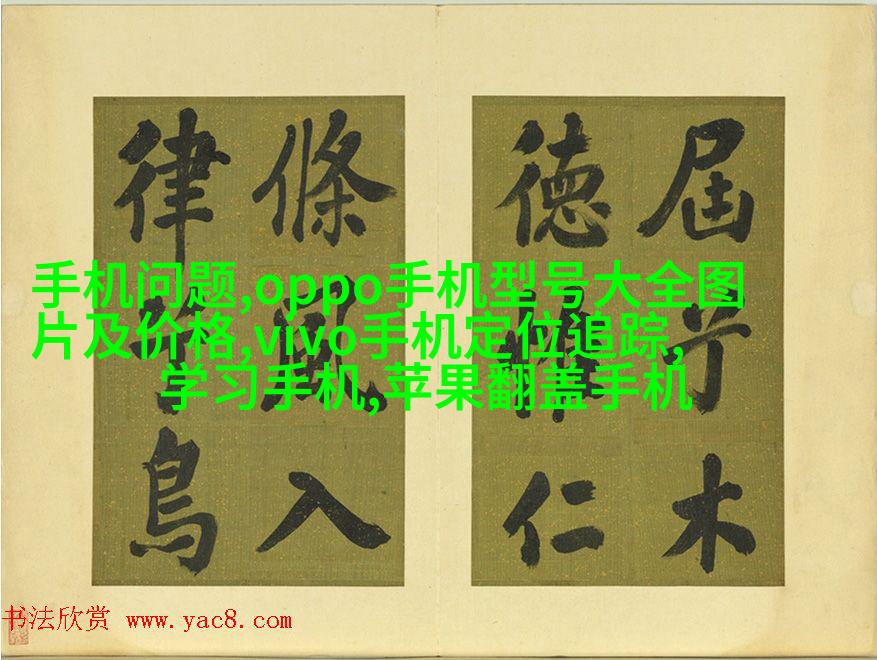 屆于木
德仁
條風入
律鳥
手机问题,oppo手机型号大全图
片及价格,vivo手机定位追踪,
学习手机,苹果翻盖手机
书法欣赏 www.yac8.com